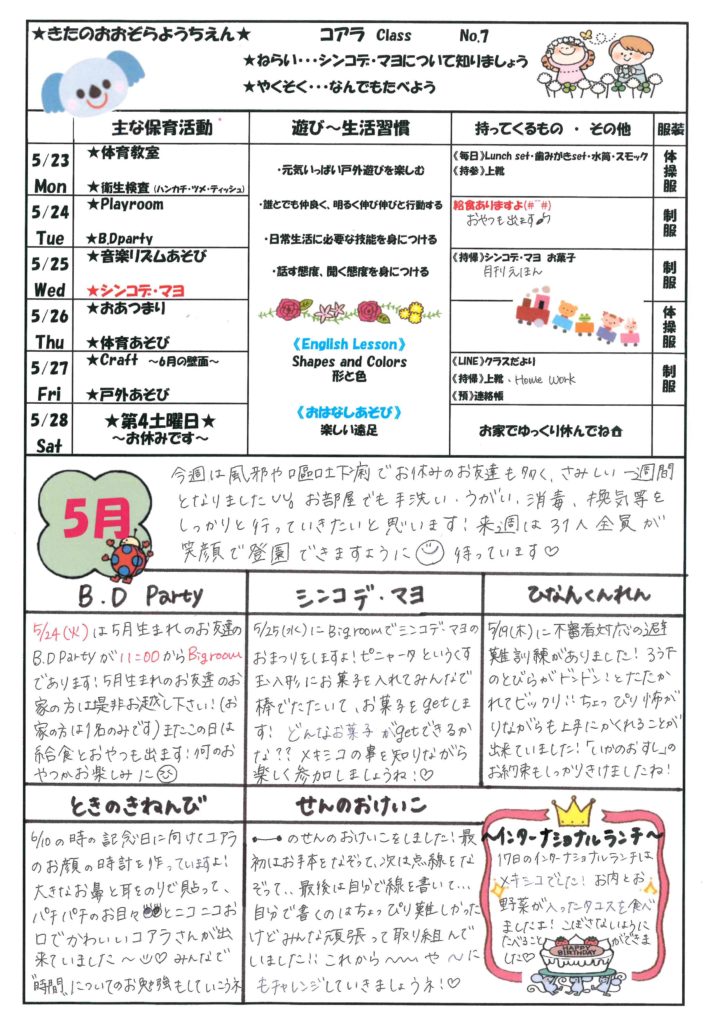 ★きたのおおぞらようちえん★ コアラ Class No.7
★ねらい・・・シンコデ・マヨについて知りましょう
★やくそく・・・なんでもたべよう
主な保育活動 遊び～生活習慣 持ってくるもの ・ その他 服装
5/23 Mon
★体育教室
★衛生検査 (ハンカチ・ツメ・ティッシュ)
5/24 Tue
★Playroom
★B.Dparty
5/25 Wed
★音楽リズムあそび
★シンコデ・マヨ
5/26 Thu
★おあつまり
★体育あそび
5/27 Fri
★Craft ～6月の壁面～
★戸外あそび
5/28 Sat
★第4土曜日★
～お休みです～
・元気いっぱい戸外遊びを楽しむ
・誰とでも仲良く、明るく伸び伸びと行動する
・日常生活に必要な技能を身につける
・話す態度、聞く態度を身につける
《English Lesson》
Shapes and Colors
形と色
《おはなしあそび》
楽しい遠足
《毎日》Lunch set・歯みがきset・水筒・スモック
《持参》上靴
体操服
給食ありますよ(#^^#)
おやつも出ます♪
制服
《持帰》シンコデ・マヨ お菓子
月刊えほん
制服
体操服
《LINE》クラスだより
《持帰》上靴、Home Work
《預》連絡帳
制服
お家でゆっくり休んでね
5月
今週は風邪や嘔吐下痢でお休みのお友達も多く、さみしい一週間
となりました。お部屋でも手洗い・うがい、消毒、換気等を
しっかりと行っていきたいと思います！来週は31人全員が
笑顔で登園できますように 待っています♡
B.D Party
5/24(火)は5月生まれのお友達の
B.D Partyが11:00からBigroom
であります！5月生まれのお友達のお
家の方は是非お越し下さい！(お
家の方は1名のみです)またこの日は
給食とおやつも出ます！何のお
やつかお楽しみに
シンコデ・マヨ
5/25(水)にBigroomでシンコデ・マヨの
おまつりをしますよ！ピニャータというくす
玉人形にお菓子を入れてみんなで
棒でたたいて、お菓子をgetしま
す！どんなお菓子がgetできるか
な？？メキシコの事を知りながら
楽しく参加しましょうね！♡
ひなんくんれん
5/19(木)に不審者対応の避
難訓練がありました！ろう下
のとびらがドンドン！とたたか
れてビックリ!!ちょっぴり怖が
りながらも上手にかくれることが
出来ていました！「いかのおすし」の
お約束もしっかりきけましたね！
ときのきねんび
6/10の時の記念日に向けてコアラ
のお顔の時計を作っていますよ！
大きなお鼻と耳をのりで貼って、
パチパチのお目々とニコニコお
口でかわいいコアラさんが出
来ていました～♡みんなで
"時間"についてのお勉強もしていこうネ
せんのおけいこ
のせんのおけいこをしました！最
初はお手本をなぞって、次は点線をな
ぞって、、最後は自分で線を書いて…
自分で書くのはちょっぴり難しかった
けどみんな頑張って取り組んで
いました!!これから や にも
チャレンジしていきましょうネ！♡
～インターナショナルランチ～
17日のインターナショナルランチは
メキシコでした！お肉とお
野菜が入ったタコスを食べ
ましたよ！こぼさないように
たべること ができま
した♡
HAPPY BIRTHDAY